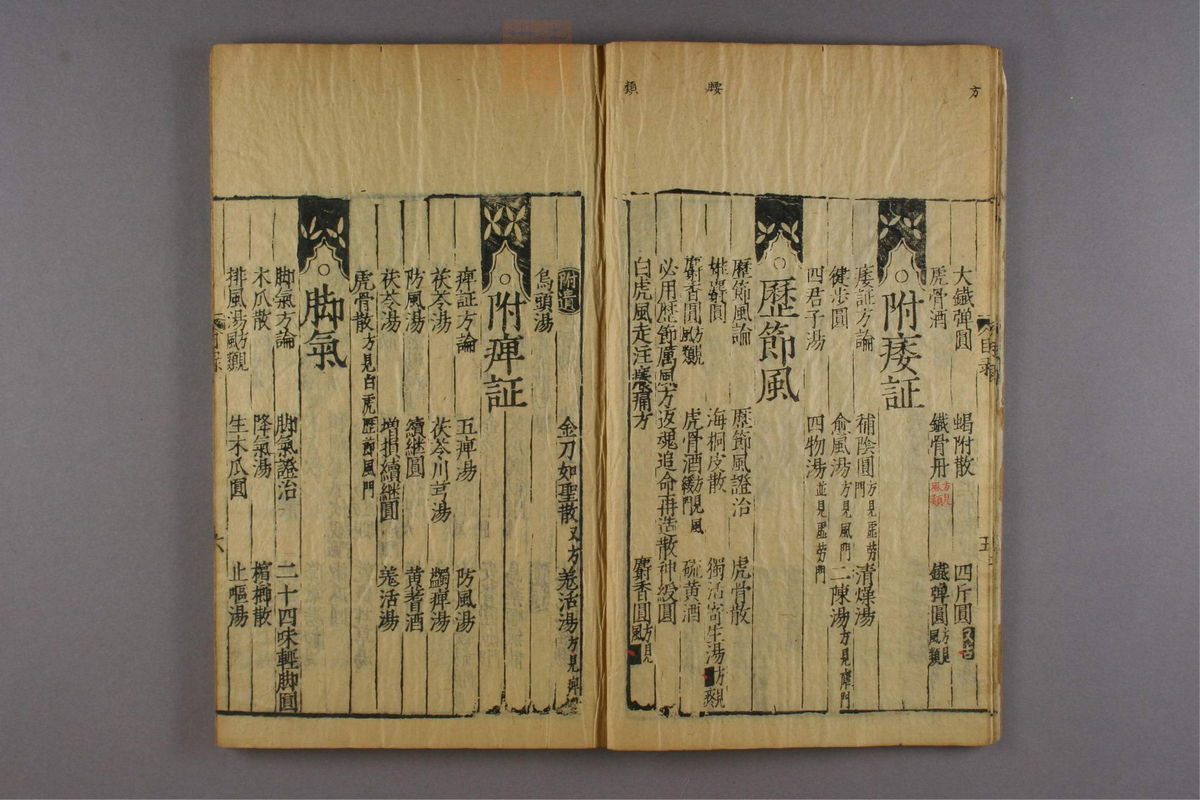 方
腰
類
大鐵弹圓 蝎附散 四斤圓
虎骨酒 鐵骨丹 方見 類 鐵彈圓 方見風類
附痿証
痿証方論 補陰圓 方見虛劳門 清燥湯
健步圓 愈風湯 方見風門 二陳湯 方見痺門
四君子湯 四物湯 並見虛劳門
歷節風
歷節風論 歷節風證治 虎骨散
海桐皮散 獨活寄生湯 方見
麝香圓 方見風類 虎骨酒 方見風門 硫黄酒
必用歷節厲風方 返魂追命再造散 神授圓
白虎風走注痛方 麝香圓 方見風
附遺 金刀如聖散 又方 羗活湯 方見痺
烏頭湯
附痺証
痺証方論 五痺湯 防風湯
茯苓湯 茯苓川芎湯 蠲痺湯
防風湯 續継圓 黄耆酒
茯苓湯 増損續継圓 羗活湯
虎骨散 方見白虎歷節風門
脚氣
脚氣方論 脚氣證治 二十四味輕脚圓
木瓜散 降氣湯 檳榔散
排風湯 方見風類 生木瓜圓 止嘔湯
六